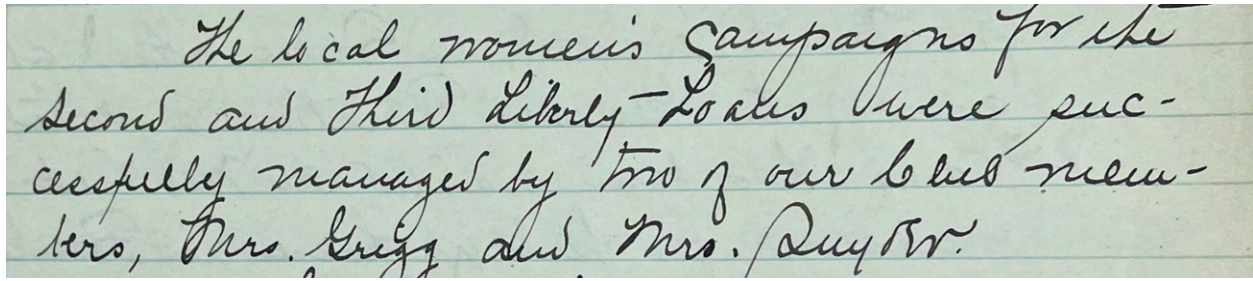 The local women's Campaigns for the
second and Third Liberty Loans were suc-
cessfully managed by two of our Club mem-
bers, Mrs. Grigg and Mrs. Snyder.